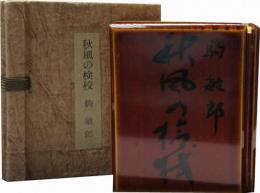 秋風の検校
駒敏郎
駒敏郎
秋風の検校